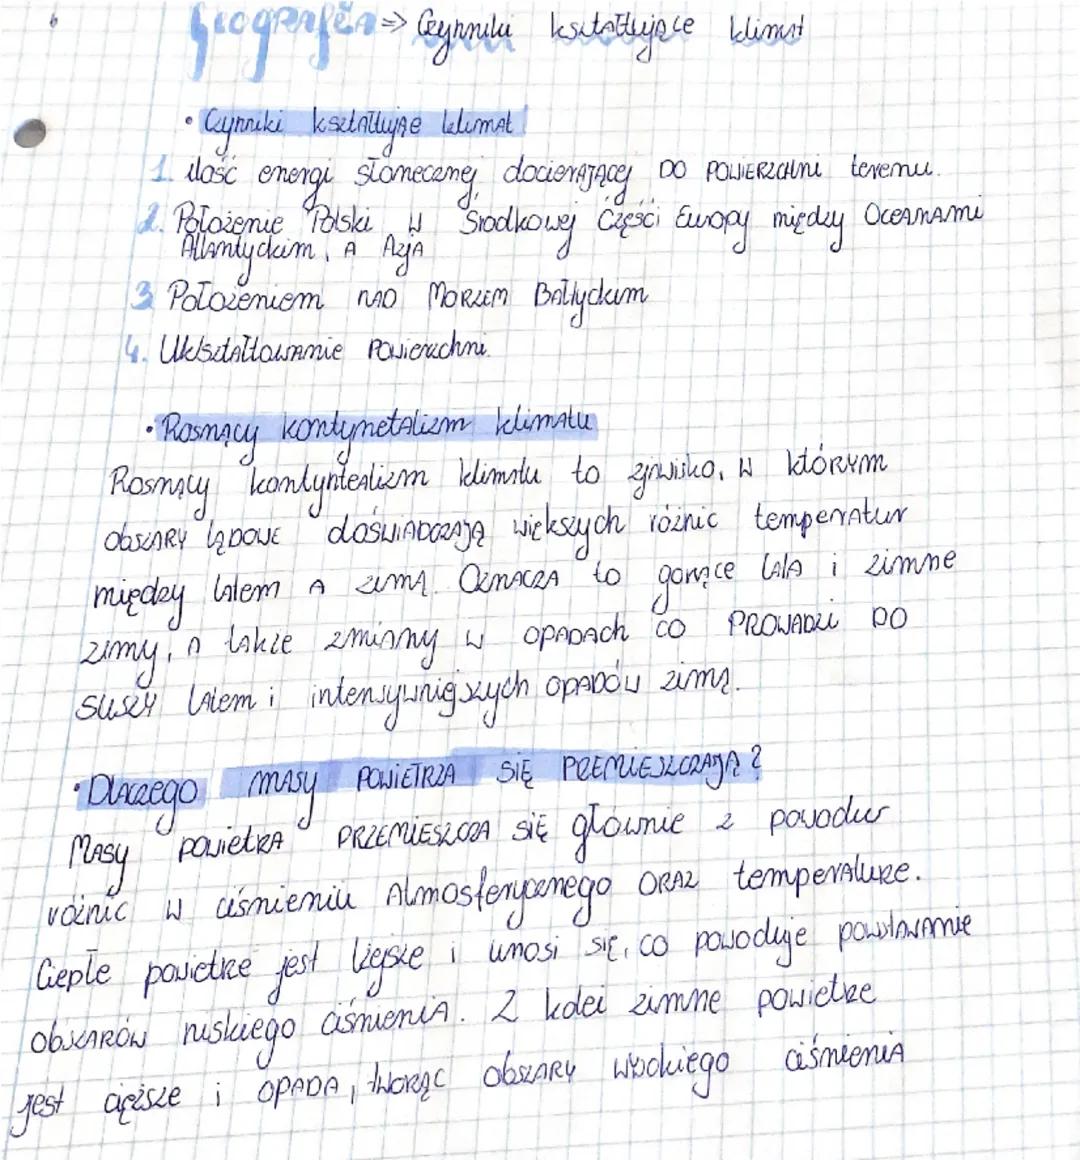 Geografia => Czynniki kształtujące klimat
• Czynniki kształtujące klimat
1. ilość energi słonecznej docierającej DO POWIERZCHNI terenu.
2. Położenie Polski w Środkowej Części Europy między OCEANAMi
Atlantyckim, A Azją
3 Położeniem NAD MORZEM Bałtyckim
4. Ukształtowanie POWIERZCHNI.
• Rosnący kontynetalizm klimatu
Rosnący kontyntealizm klimatu to zjawisko, w którym
obszARY LąDOWE doświADCZAJĄ większych różnic temperatur
między latem A zimą. OZNACZA to gorące lata i zimne
zimy, A także zmianny w OPADACH CO PROWADZI DO
SUSZY latem i intensywniejszych OPADÓW zimą.
• Dlaczego MASY POWIETRZA SIĘ PRZEMIESZCZAJĄ?
MASY POWIETRZA PRZEMIESZCZA SIĘ głównie z powodu
różnic w ciśnieniu Atmosferycznego ORAZ temperaturze.
Ciepłe powietrze jest lżejsze i unosi się, co powoduje powstawanie
obszARÓW niskiego ciśnieniA. Z kolei zimne powietrze
jest cięższe i OPADA, tworząc obszARY wysokiego ciśnieniA